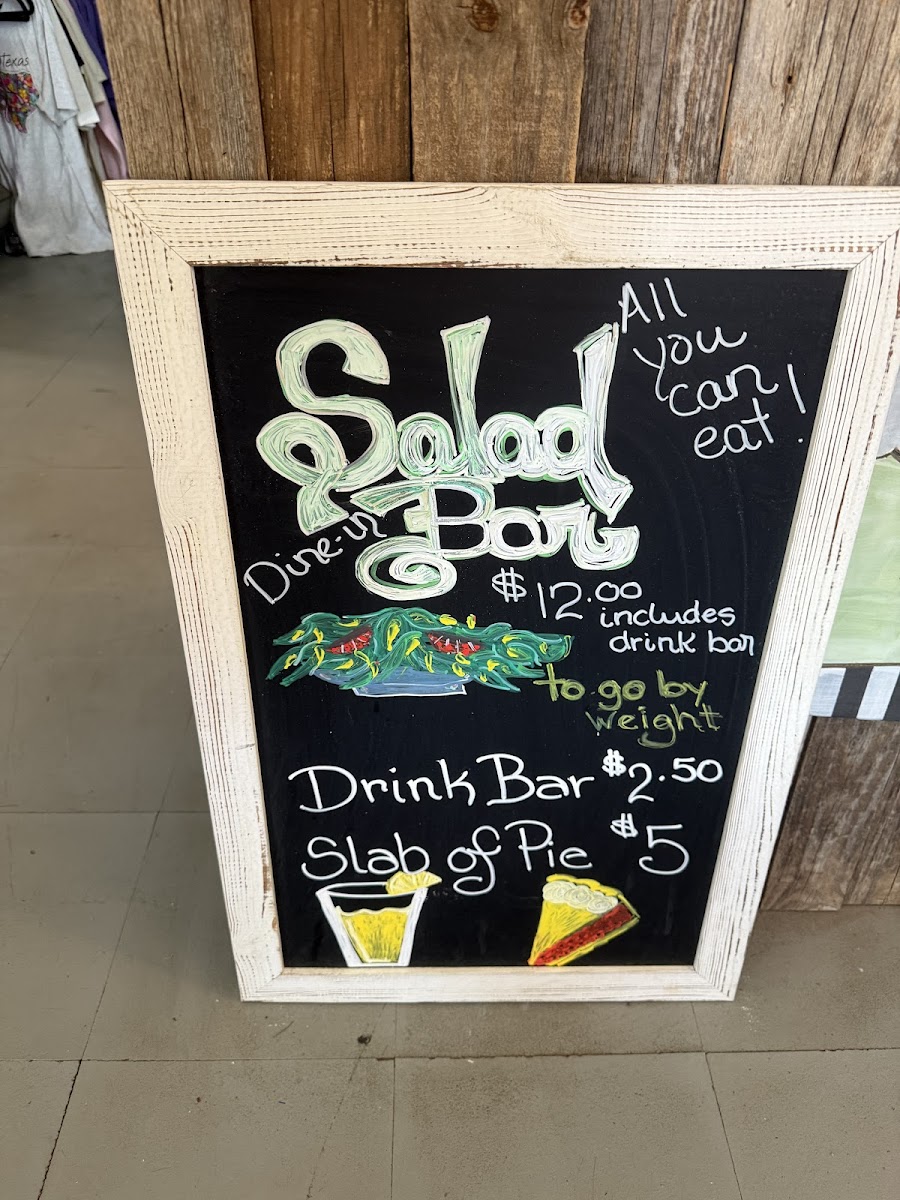 Texas
All
you
can
eat!
Salad
Bar
Dine-in
$12.00
includes
drink bar
to go by
weight
Drink Bar $2.50
Slab of Pie $5